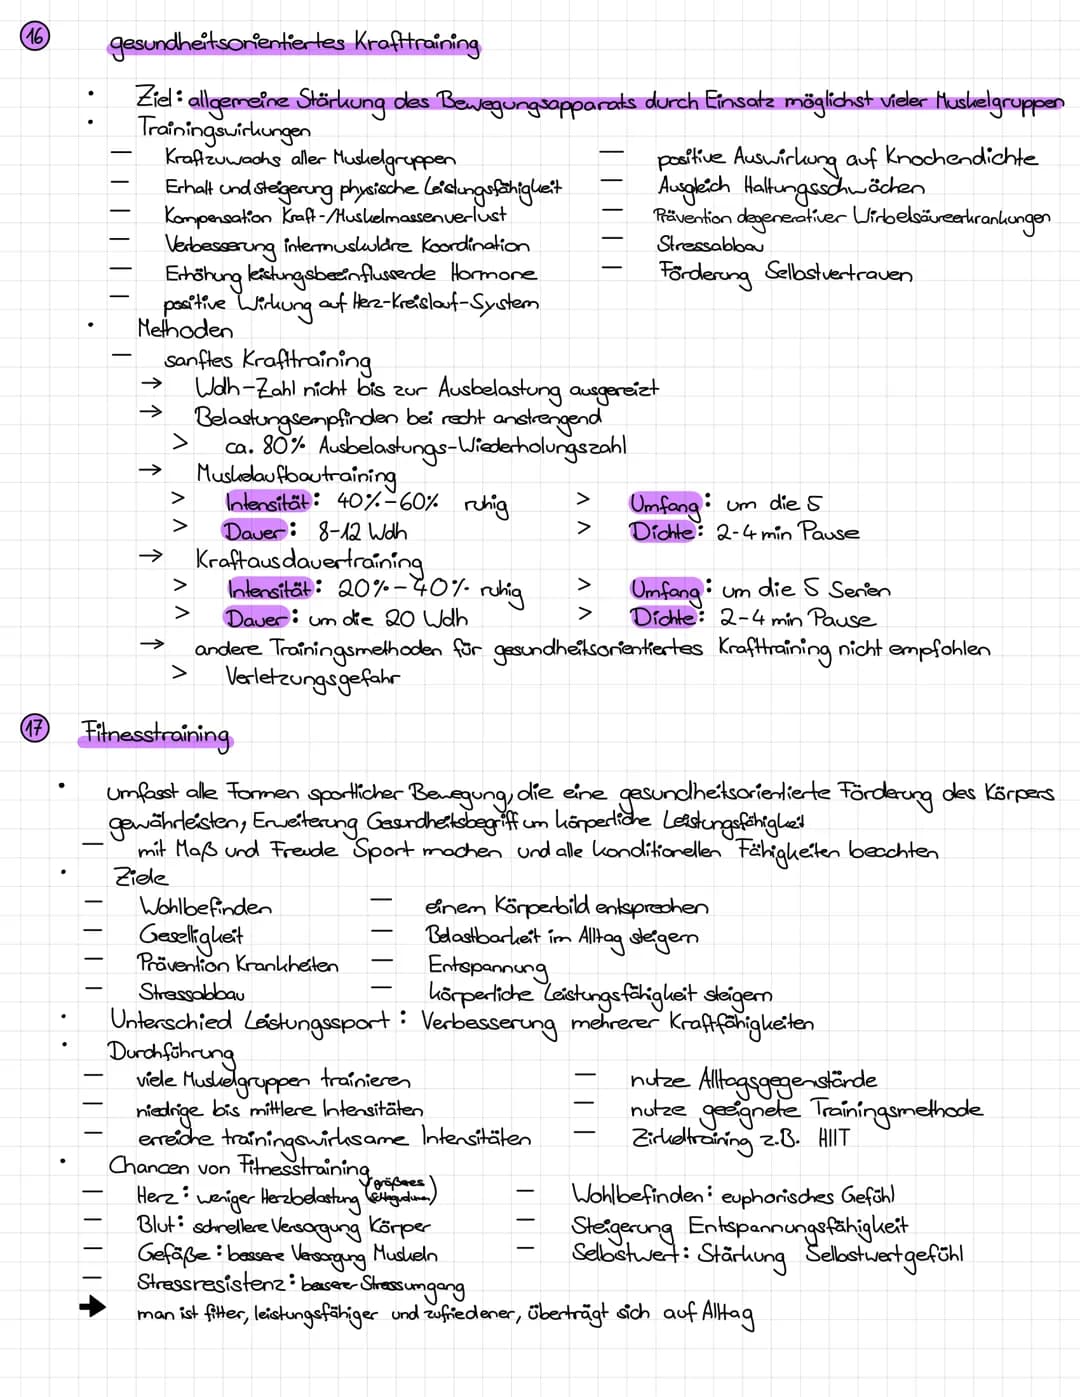 16 gesundheitsorientiertes Krafttraining
• Ziel: allgemeine Stärkung des Bewegungsapparats durch Einsatz möglichst vieler Muskelgruppen
• Trainingswirkungen
— Kraftzuwachs aller Muskelgruppen — positive Auswirkung auf Knochendichte
— Erhalt und steigerung physische Leistungsfähigkeit — Ausgleich Haltungsschwächen
— Kompensation Kraft-/Muskelmassenverlust — Prävention degenerativer Wirbelsäureerkrankungen
— Verbesserung intermuskuläre Koordination — Stressabbau
— Erhöhung leistungsbeeinflussende Hormone — Förderung Selbstvertrauen
— positive Wirkung auf Herz-Kreislauf-System
• Methoden
— sanftes Krafttraining
→ Wdh-Zahl nicht bis zur Ausbelastung ausgereizt
→ Belastungsempfinden bei recht anstrengend
> ca. 80% Ausbelastungs-Wiederholungszahl
→ Muskelaufbautraining
> Intensität: 40%-60% ruhig > Umfang: um die 5
> Dauer: 8-12 Wdh > Dichte: 2-4 min Pause
→ Kraftausdauertraining
> Intensität: 20%-40% ruhig > Umfang: um die 5 Serien
> Dauer: um die 20 Wdh > Dichte: 2-4 min Pause
→ andere Trainingsmethoden für gesundheitsorientiertes Krafttraining nicht empfohlen
> Verletzungsgefahr
17 Fitnesstraining
• umfasst alle Formen sportlicher Bewegung, die eine gesundheitsorientierte Förderung des Körpers
gewährleisten, Erweiterung Gesundheitsbegriff um körperliche Leistungsfähigkeit
— mit Maß und Freude Sport machen und alle konditionellen Fähigkeiten beachten
• Ziele
— Wohlbefinden — einem Körperbild entsprechen
— Geselligkeit — Belastbarkeit im Alltag steigern
— Prävention Krankheiten — Entspannung
— Stressabbau — körperliche Leistungsfähigkeit steigern
• Unterschied Leistungssport: Verbesserung mehrerer Kraftfähigkeiten
• Durchführung
— viele Muskelgruppen trainieren — nutze Alltagsgegenstände
— niedrige bis mittlere Intensitäten — nutze geeignete Trainingsmethode
— erreiche trainingswirksame Intensitäten — Zirkeltraining z.B. HIIT
• Chancen von Fitnesstraining
— Herz: weniger Herzbelastung (größeres Schlagvolumen) — Wohlbefinden: euphorisches Gefühl
— Blut: schnellere Versorgung Körper — Steigerung Entspannungsfähigkeit
— Gefäße: bessere Versorgung Muskeln — Selbstwert: Stärkung Selbstwertgefühl
— Stressresistenz: besserer Stressumgang
→ man ist fitter, leistungsfähiger und zufriedener, überträgt sich auf Alltag